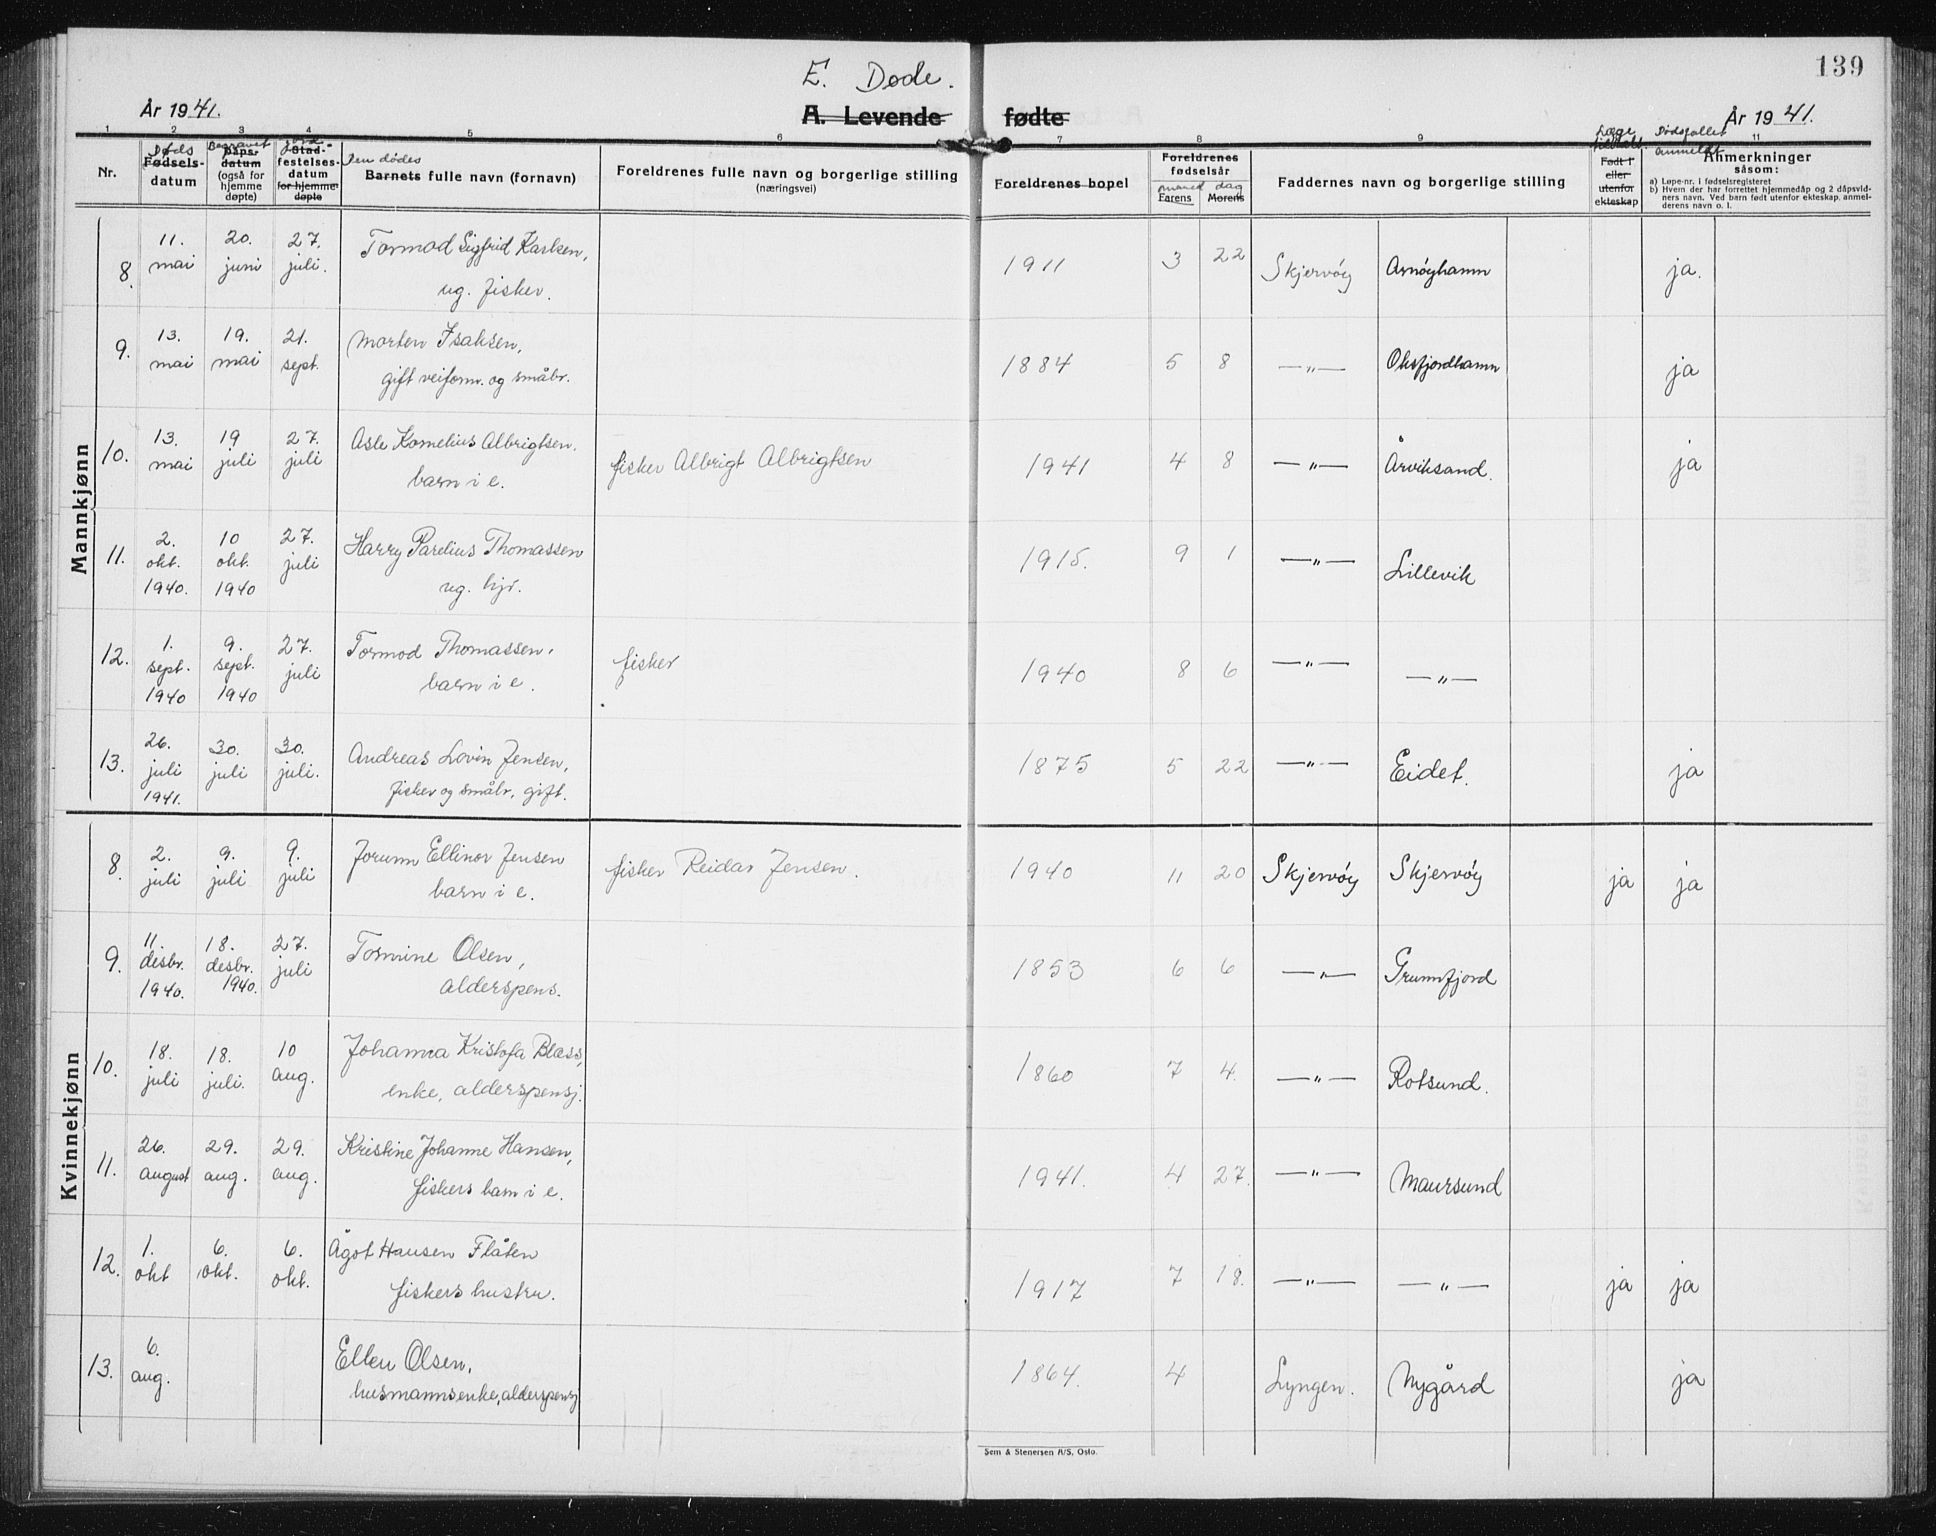 139
E. Døde.
År 1941. A. Levende fødte År 1941.
1 2 3 4 5 6 7 8 9 11
Nr.
Døds
Fødsels-
datum
Begravet
Dåps-
datum
(også for
hjemme
døpte)
jord-
Stad-
festelses-
datum
for hjemme-
døpte
Den dødes
Barnets fulle navn (fornavn)
Foreldrenes fulle navn og borgerlige stilling
(næringsvei)
Foreldrenes bopel
Foreldrenes
fødselsår
måned dag
Farens Morens
Faddernes navn og borgerlige stilling
Læge
tilkalt.
Født i
eller
utenfor
ekteskap
Dødsfallet
anmeldt
Anmerkninger
såsom:
a) Løpe-nr. i fødselsregisteret
b) Hvem der har forrettet hjemmedåp og 2 dåpsvid-
ners navn. Ved barn født utenfor ekteskap, anmel-
derens navn o. l.
Mannkjønn
8. 11. mai 20. juni 27. juli. Tormod Sigfrid Karlsen, 1911 3 22 Skjervøy Arnøyhamn ja.
ug. fisker.
9. 13. mai 19. mai 21. sept. Morten Isaksen, 1884 5 8 —"— Oksfjordhamn ja
gift veiform. og småbr.
10. 13. mai 19 juli 27. juli Asle Kornelius Albrigtsen. fisker Albrigt Albrigtsen 1941 4 8 —"— Årviksand. ja
barn i e.
11. 2. okt. 1940. 10 okt. 1940 27. juli Harry Parelius Thomassen 1915. 9 1 —"— Lillevik
ug. hjr.
12. 1. sept. 1940 9. sept. 1940 27. juli Tormod Thomassen, fisker 1940 8 6 —"— —"—
barn i e.
13. 26. juli 1941. 30. juli 30. juli. Andreas Lovin Jensen, 1875 5 22 —"— Eidet. ja
fisker og småbr, gift.
Kvinnekjønn
8. 2. juli 9. juli 9. juli Jorunn Ellinor Jensen fisker Reidar Jensen. 1940 11 20 Skjervøy Skjervøy ja ja
barn i e.
9. 11. desbr. 1940. 18. desbr. 1940. 27. juli Tormine Olsen, 1853 6 6 —"— Grunnfjord
alderspens.
10. 18. juli 18. juli. 10 aug. Johanna Kristofa Blæss, 1860 7 4. —"— Rotsund.
enke, alderspensj.
11. 26. august 29. aug. 29. aug. Kristine Johanne Hansen, 1941. 4 27. —"— Maursund
fiskers barn i e.
12. 1. okt 6. okt. 6. okt. Ågot Hansen Flåten 1917 7 18. —"— —"— ja ja
fiskers hustru.
13. 6. aug. Ellen Olsen, 1864. 4 Lyngen. Nygård ja
husmannsenke, alderspensj
Sem & Stenersen A/S, Oslo.